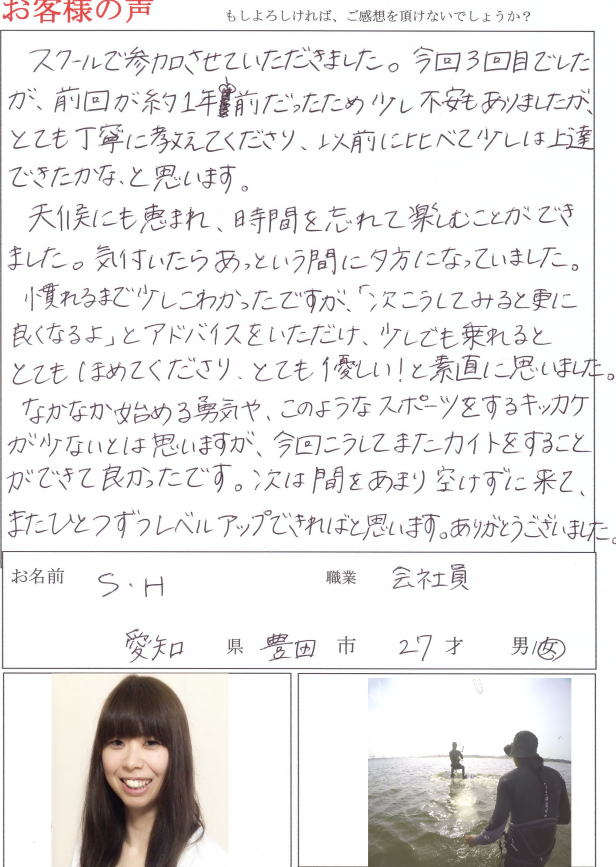 お客様の声
もしよろしければ、ご感想を頂けないでしょうか?
スクールで参加させていただきました。今回3回目でした
が、前回が約1年前だったため少し不安もありましたが、
とても丁寧に教えてくださり、以前に比べて少しは上達
できたかな、と思います。
天候にも恵まれ、時間を忘れて楽しむことができ
ました。気付いたらあっという間に夕方になっていました。
慣れるまで少しこわかったですが、「次こうしてみると更に
良くなるよ」とアドバイスをいただけ、少しでも乗れると
とてもほめてくださり、とても優しい!と素直に思いました。
なかなか始める勇気や、このようなスポーツをするキッカケ
が少ないとは思いますが、今回こうしてまたカイトをすること
ができて良かったです。次は間をあまり空けずに来て、
またひとつずつレベルアップできればと思います。ありがとうございました。
お名前 S.H 職業 会社員
愛知 県 豊田 市 27才 男/女